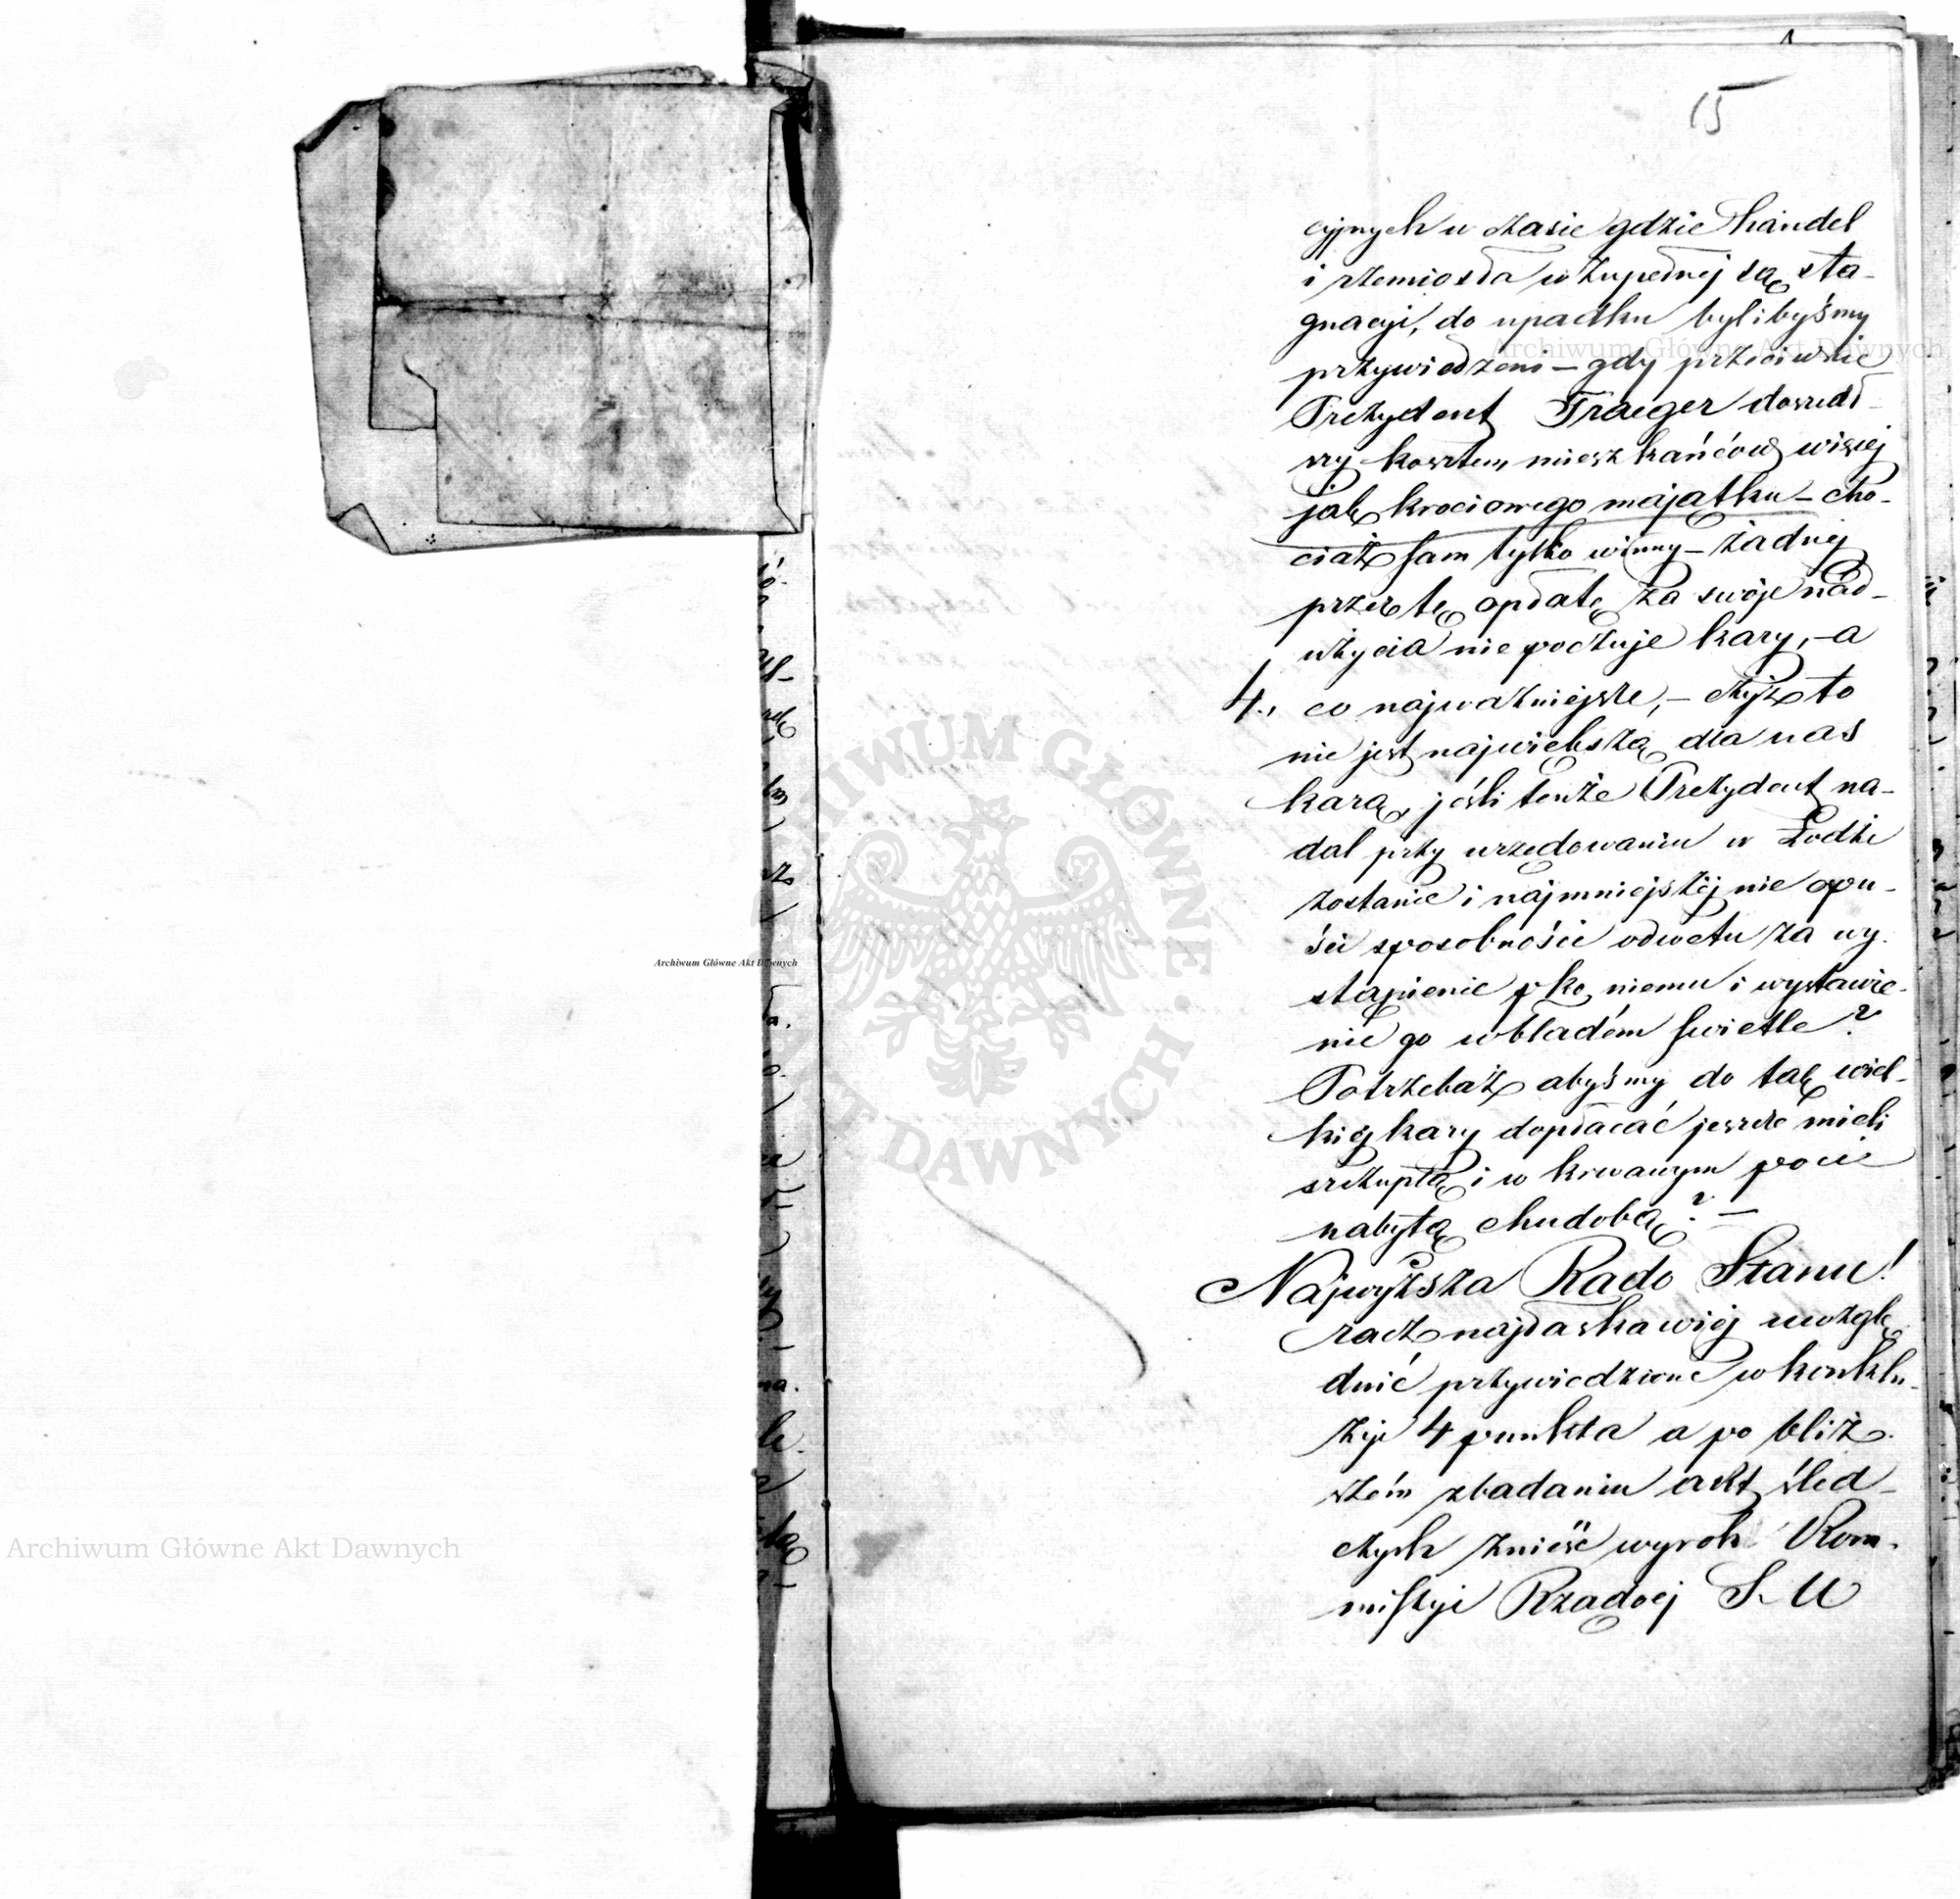 15
cyjnych w czasie gdzie handel
i rzemiosła w zupełnej są sta-
gnacyi, do upadku bylibyśmy
przywiedzeni – gdy przeciwnie
Prezydent Traeger doszedł-
szy kosztem mieszkańców więcej
jak krociowego majątku – cho-
ciaż sam tylko winny – żadnej
przez tę opłatę za swoje nad-
użycia nie poczuje kary, – a
4., co najważniejsze, – czyż to
nie jest największą dla nas
karą, jeśli tenże Prezydent na-
dal przy urzędowaniu w Łodzi
zostanie i najmniejszej nie opu-
ści sposobności odwetu za wy-
stąpienie pko niemu i wystawie-
nie go w bladém świetle?
Potrzebaż abyśmy do tak wiel-
kiej kary dopłacać jeszcze mieli
szczupłą i w krwawym pocie
nabytą chudobą? –
Najwyższa Rado Stanu!
racz najłaskawiej uwzglę-
dnić przywiedzione w konklu-
zyi 4 punkta a po bliż-
szém zbadaniu akt śled-
czych znieść wyrok Kom-
missyi Rządcej S. W
Archiwum Główne Akt Dawnych
Archiwum Główne Akt Dawnych
Archiwum Główne Akt Dawnych
ARCHIWUM GŁÓWNE AKT DAWNYCH